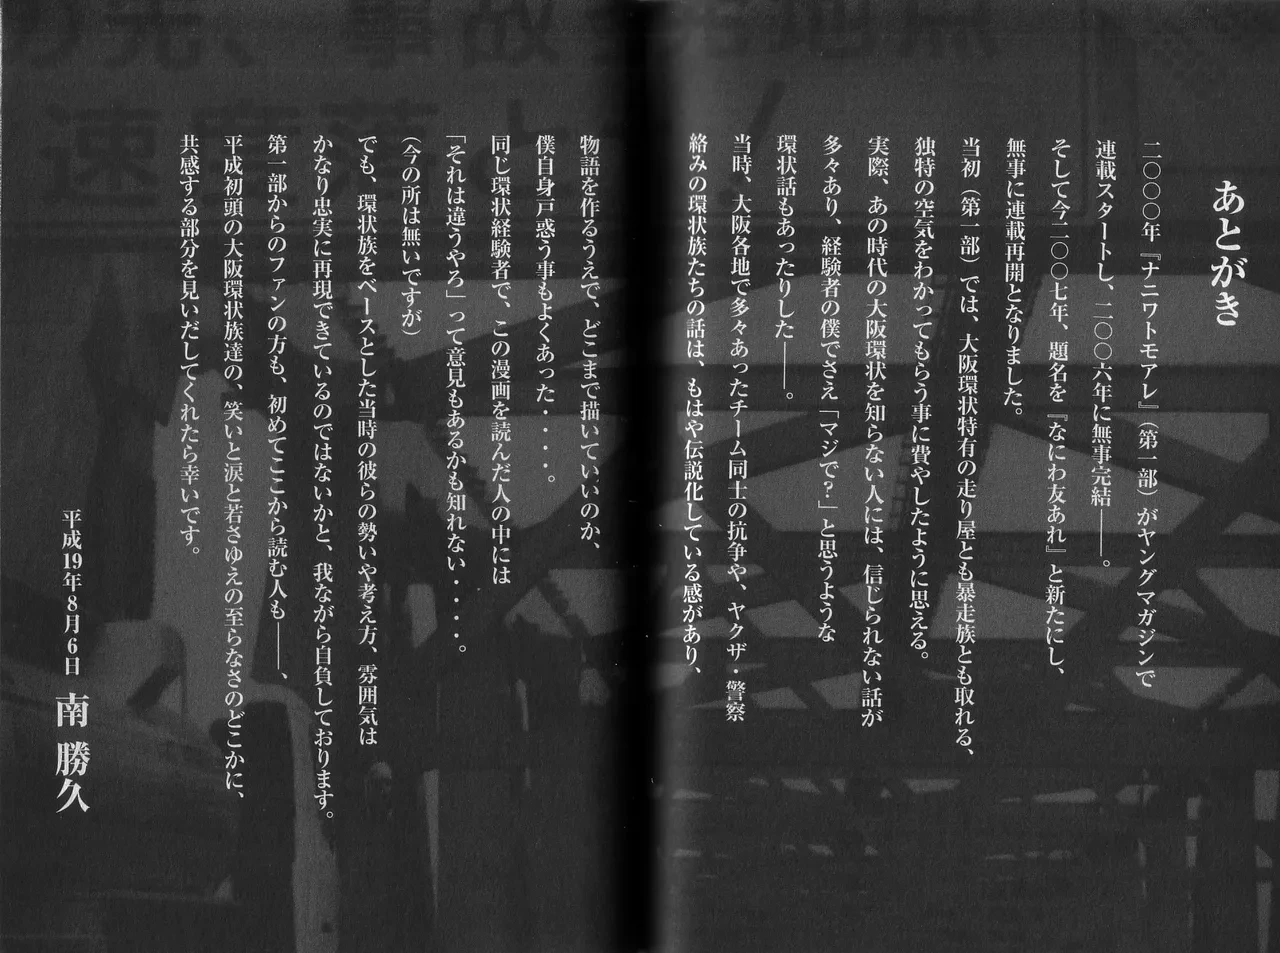 あとがき
二〇〇〇年『ナニワトモアレ』（第一部）がヤングマガジンで
連載スタートし、二〇〇六年に無事完結――。
そして今二〇〇七年、題名を『なにわ友あれ』と新たにし、
無事に連載再開となりました。
当初（第一部）では、大阪環状特有の走り屋とも暴走族とも取れる、
独特の空気をわかってもらう事に費やしたように思える。
実際、あの時代の大阪環状を知らない人には、信じられない話が
多々あり、経験者の僕でさえ「マジで？」と思うような
環状話もあったりした――。
当時、大阪各地で多々あったチーム同士の抗争や、ヤクザ・警察
絡みの環状族たちの話は、もはや伝説化している感があり、
物語を作るうえで、どこまで描いていいのか、
僕自身戸惑う事もよくあった・・・・。
同じ環状経験者で、この漫画を読んだ人の中には
「それは違うやろ」って意見もあるかも知れない・・・・。
（今の所は無いですが）
でも、環状族をベースとした当時の彼らの勢いや考え方、雰囲気は
かなり忠実に再現できているのではないかと、我ながら自負しております。
第一部からのファンの方も、初めてここから読む人も――、
平成初頭の大阪環状族達の、笑いと涙と若さゆえの至らなさのどこかに、
共感する部分を見いだしてくれたら幸いです。
平成19年8月6日 南 勝久